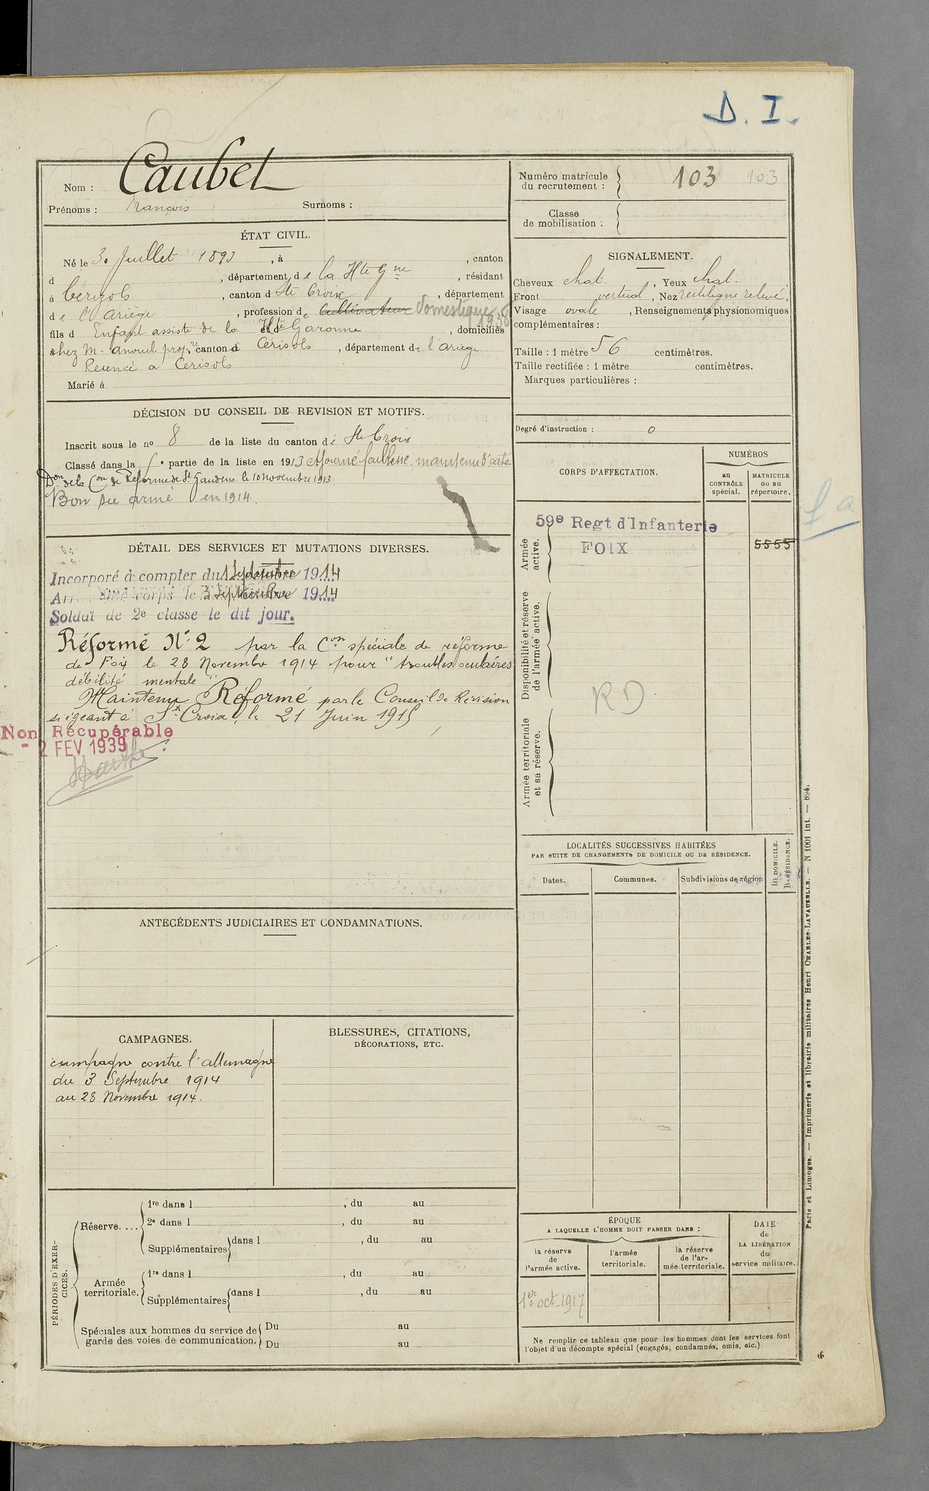 D. I.
Nom : Caubet
Prénoms : François Surnoms :
Numéro matricule du recrutement : 103 103
Classe de mobilisation :
ÉTAT CIVIL.
Né le 30 Juillet 1893, à , canton
d , département de la Hte Gne, résidant
à Cerizols, canton d Ste Croix, département
de l'Ariège, profession de Cultivateur Domestique
fils d Enfant assisté de la et d Hte Garonne, domiciliés
chez M. prop.re canton d Cerisols, département de l'ariège
a Cerisols
Marié à
SIGNALEMENT.
Cheveux chat. , Yeux chat.
Front vertical, Nez rectiligne relevé,
Visage ovale, Renseignements physionomiques
complémentaires :
Taille : 1 mètre 56 centimètres.
Taille rectifiée : 1 mètre centimètres.
Marques particulières :
Degré d'instruction : 0
DÉCISION DU CONSEIL DE REVISION ET MOTIFS.
Inscrit sous le no 8 de la liste du canton de Ste Croix
Classé dans la partie de la liste en 1913 Ajourné faiblesse, maintenu
Don de la Con de Réforme de St Gaudens le 10 novembre 1913
Bon Sce armé en 1914
CORPS D'AFFECTATION.
NUMÉROS
AU CONTRÔLE spécial.
MATRICULE OU AU répertoire.
Armée active.
59e Regt d'Infanterie
FOIX
5555
Disponibilité et réserve de l'armée active.
RD
Armée territoriale et sa réserve.
DÉTAIL DES SERVICES ET MUTATIONS DIVERSES.
Incorporé à compter du 1 Septembre 1914
Arrivé au corps le 3 Septembre 1914
Soldat de 2e classe le dit jour.
Réformé No 2 par la Con spéciale de réforme
de Foix le 28 Novembre 1914 pour "troubles oculaires
débilité mentale"
Maintenu Réformé par le Conseil de Révision
siégeant à Ste Croix, le 21 Juin 1915
Non Récupérable
- 2 FEV 1939
LOCALITÉS SUCCESSIVES HABITÉES
PAR SUITE DE CHANGEMENTS DE DOMICILE OU DE RÉSIDENCE.
Dates. Communes. Subdivisions de région
D. DOMICILE. R. RÉSIDENCE.
ANTECÉDENTS JUDICIAIRES ET CONDAMNATIONS.
CAMPAGNES.
campagne contre l'allemagne
du 3 Septembre 1914
au 28 Novembre 1914.
BLESSURES, CITATIONS,
DÉCORATIONS, ETC.
PÉRIODES D'EXERCICES.
Réserve....
1re dans l , du au
2e dans l , du au
Supplémentaires dans l , du au
Armée territoriale.
1re dans l , du au
Supplémentaires dans l , du au
Spéciales aux hommes du service de garde des voies de communication.
Du au
Du au
ÉPOQUE
A LAQUELLE L'HOMME DOIT PASSER DANS :
la réserve de l'armée active.
l'armée territoriale.
la réserve de l'armée territoriale.
DATE de LA LIBÉRATION du service militaire.
1er oct. 1917
Ne remplir ce tableau que pour les hommes dont les services font
l'objet d'un décompte spécial (engagés, condamnés, omis, etc.)
Paris et Limoges. — Imprimerie et librairie militaires Henri CHARLES-LAVAUZELLE. — N 1001 int. — 894.